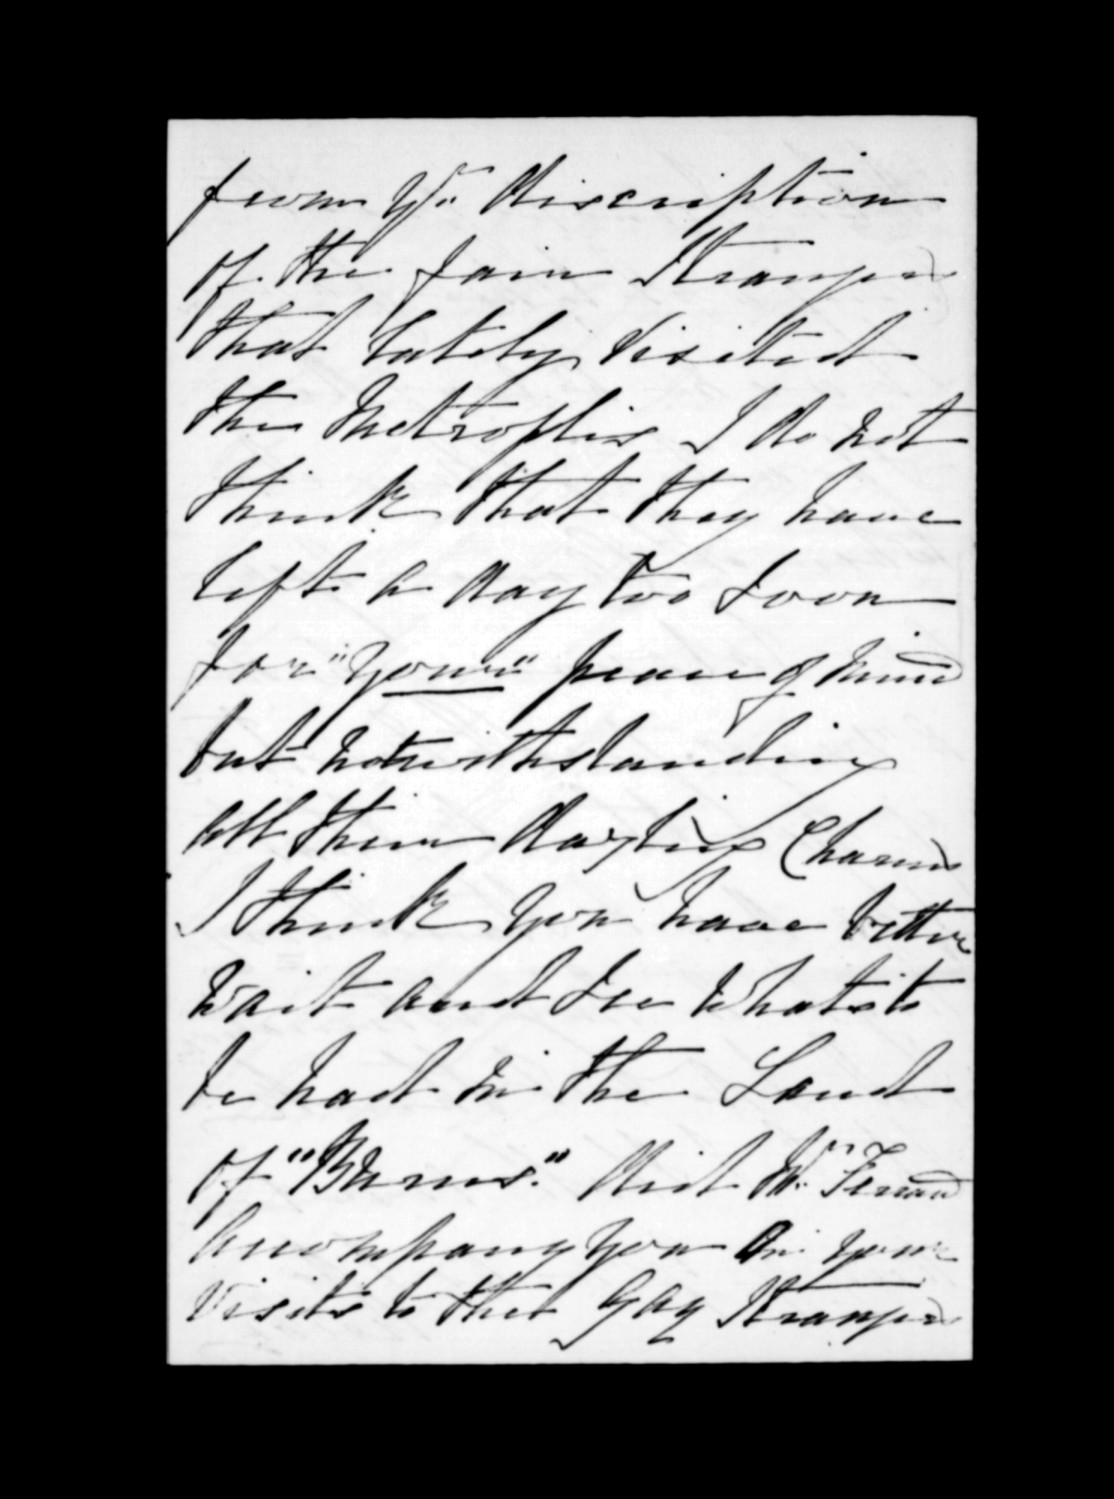 from yr. discription
of the fair Stranger
that lately visited
the Metroplis I do not
think that they have
left a day too soon
for "your" peace of mind
but notwithstanding
all their dazling Charms
I think you have better
wait and see whats to
be had in the Land
of "Burns." did Mr.
accompany you in your
visits to the Gay Stranger